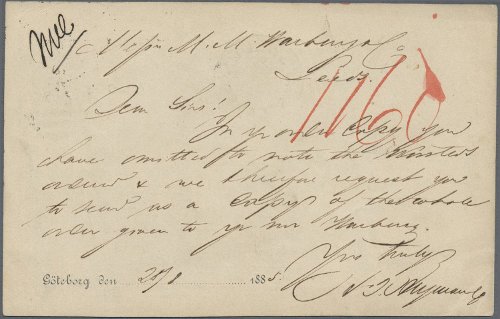 Messrs M. M. Warburg & Co
Leeds.
1160
Dear Sirs!
In yr order copy you
have omitted to note the
order & we therefore request you
to send us a Copy of the whole
order given to yr mr Warburg.
Yrs truly
Göteborg den 1885.